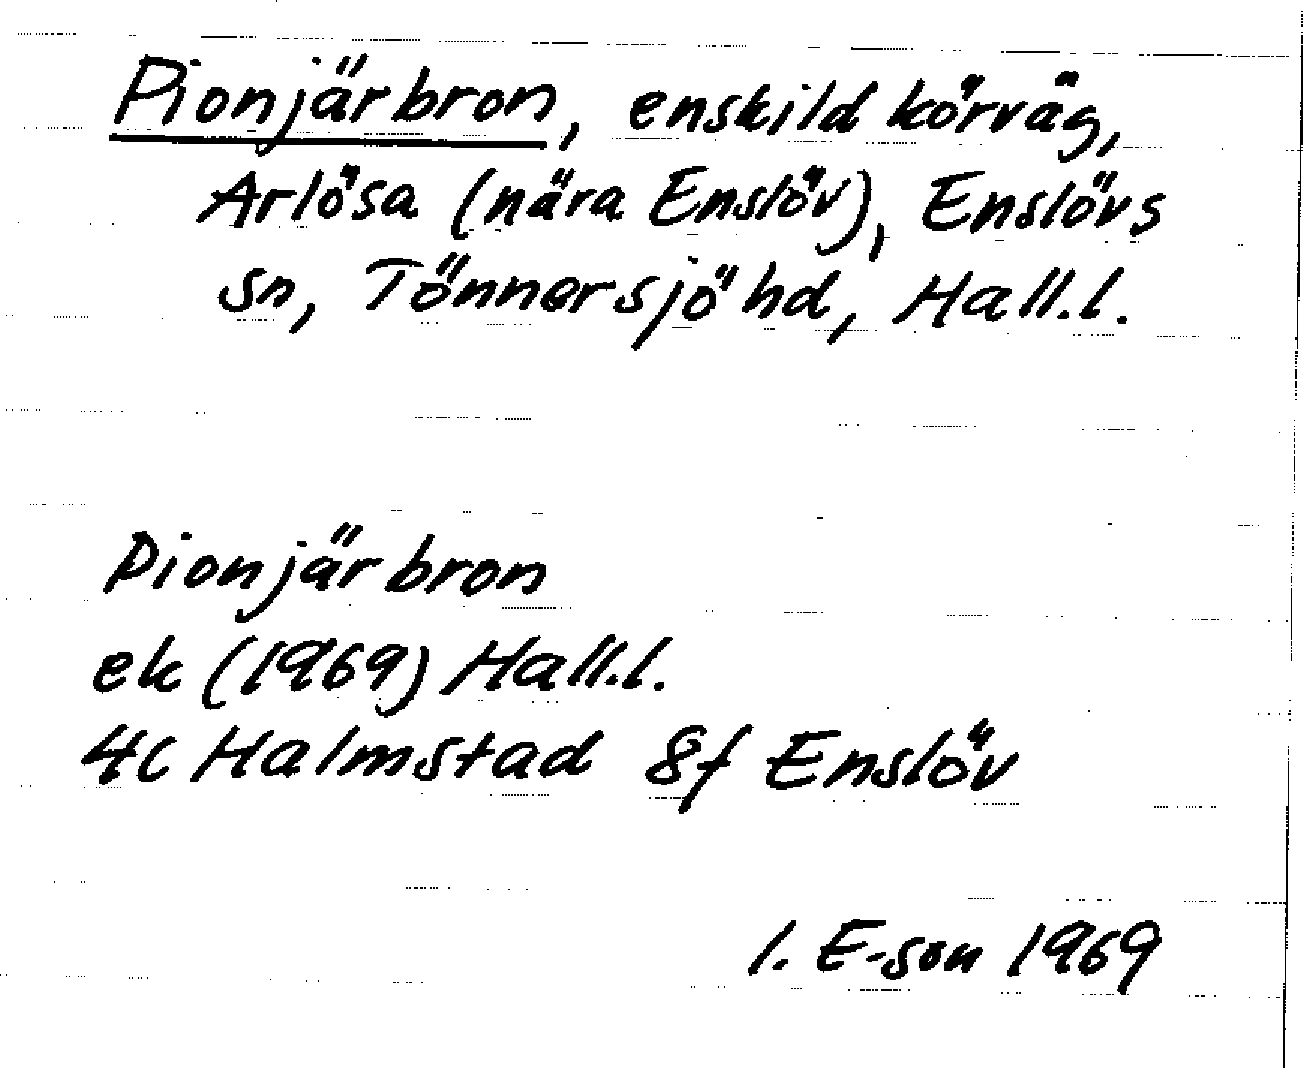 Pionjärbron, enskild körväg,
Arlösa (nära Enslöv), Enslövs
sn, Tönnersjö hd, Hall.l.
Pionjärbron
ek (1969) Hall.l.
4C Halmstad 8f Enslöv
I. E-son 1969